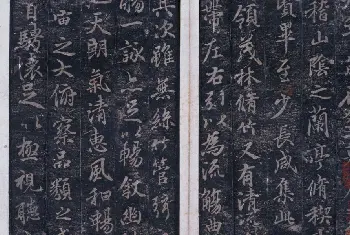 稽山陰之蘭亭脩禊
賢畢至少長咸集此
領茂林脩竹又有清流
帶左右引以為流觴曲
其次雖無絲竹管弦
觴一詠亦足以暢敘幽
也天朗氣清惠風和暢
宙之大俯察品類之
目騁懷足以極視聽